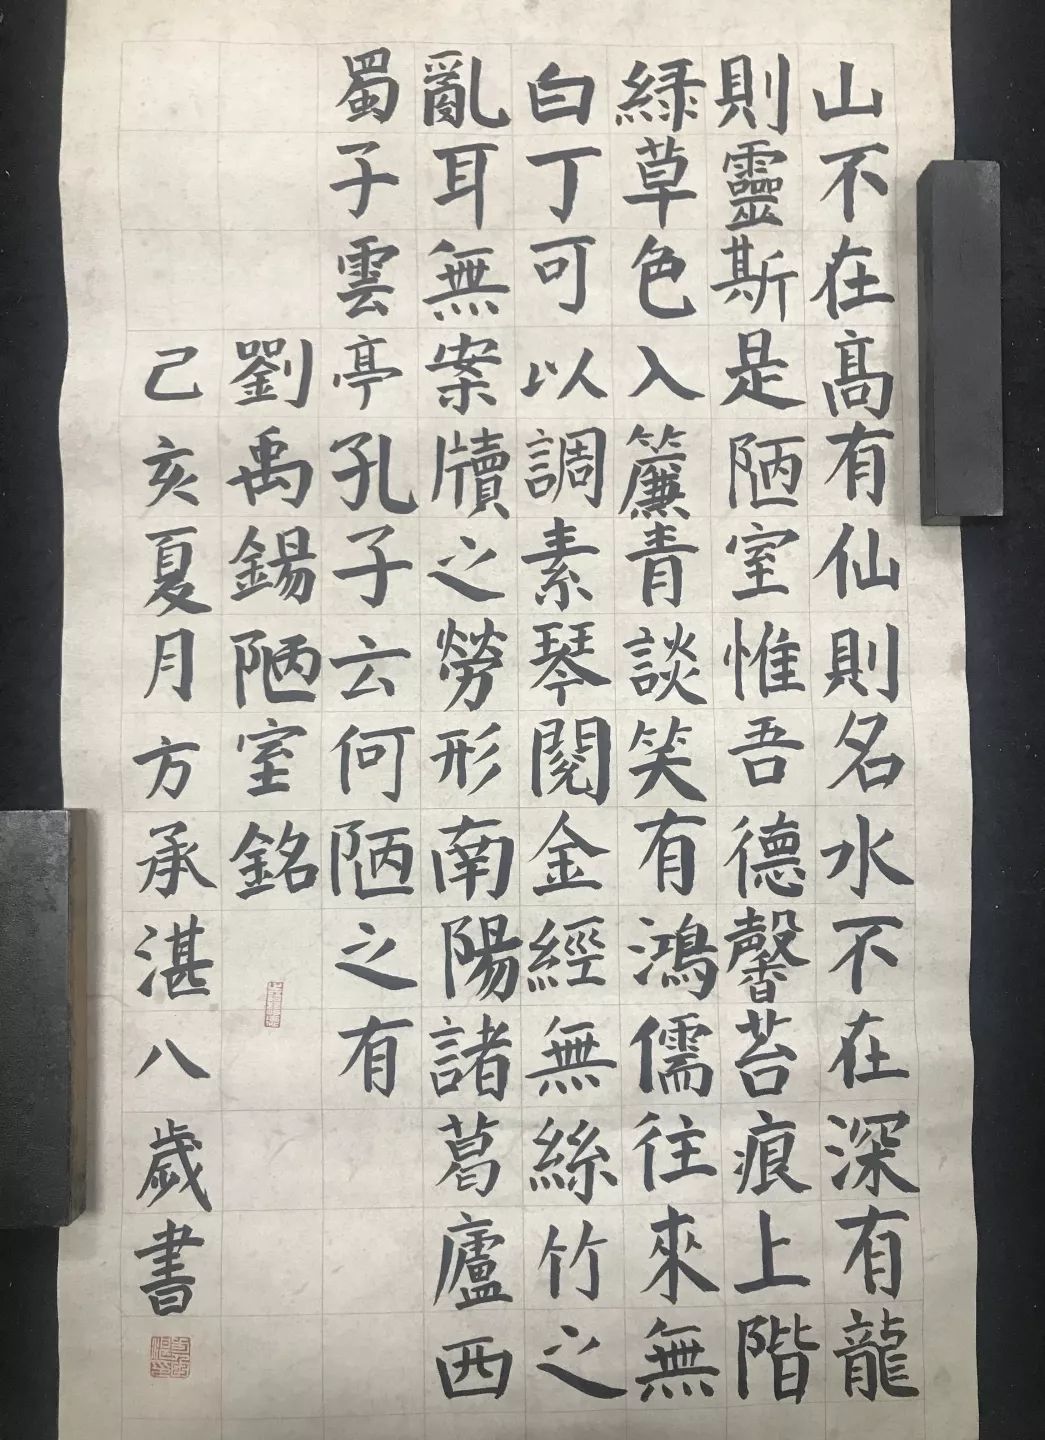 山不在高有仙則名水不在深有龍
則靈斯是陋室惟吾德馨苔痕上階
綠草色入簾青談笑有鴻儒往來無
白丁可以調素琴閱金經無絲竹之
亂耳無案牘之勞形南陽諸葛廬西
蜀子雲亭孔子云何陋之有
劉禹錫陋室銘
己亥夏月方承湛八歲書